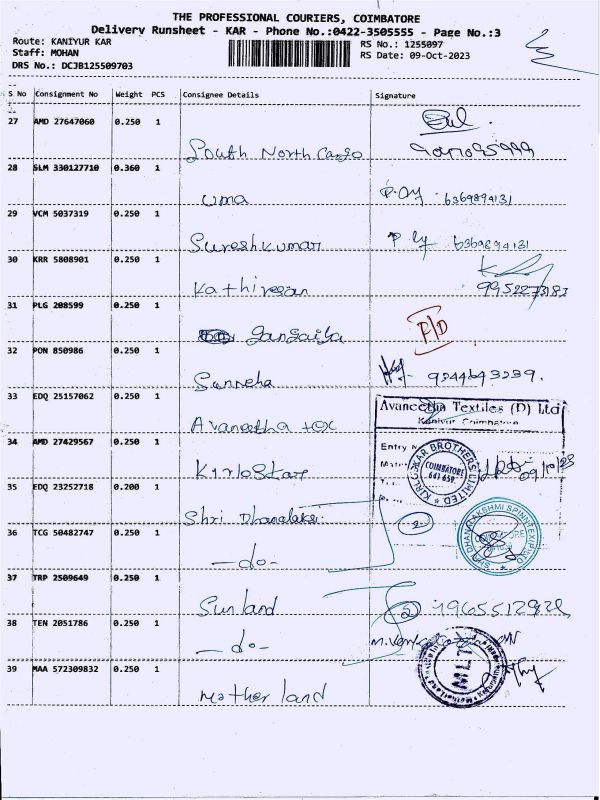 THE PROFESSIONAL COURIERS, COIMBATORE
Delivery Runsheet - KAR - Phone No.:0422-3505555 - Page No.:3
Route: KANIYUR KAR
RS No.: 1255097
Staff: MOHAN
RS Date: 09-Oct-2023
DRS No.: DCJB125509703
S No Consignment No Weight PCS Consignee Details Signature
27 AMD 27647060 0.250 1
South North Cargo
28 SLM 330127710 0.360 1
uma 6369894131
29 VCM 5037319 0.250 1
Sureshkumar 6369894131
30 KRR 5808901 0.250 1
Kathiresan 9952273183
31 PLG 208599 0.250 1
P/D
32 PON 850986 0.250 1
Sanneha 9244643239.
33 EDQ 25157062 0.250 1
Avaneetha tex
Avaneetha Textiles (P) Ltd
Kaniyur Coimbatore
34 AMD 27429567 0.250 1
Entry N
Kirloskar
KIRLOSKAR BROTHERS LIMITED
COIMBATORE
641 659.
09/10/23
35 EDQ 23252718 0.200 1
Shri Dhanalaksi
2
SHRI DHANALAKSHMI SPINNTEX
36 TCG 50482747 0.250 1
-do-
37 TRP 2509649 0.250 1
Sunland
2
38 TEN 2051786 0.250 1
-do-
39 MAA 572309832 0.250 1
Mother land